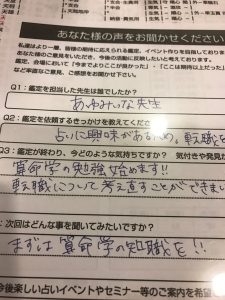 あなた様の声をお聞かせください
私達はより一層、皆様の期待に応えられる鑑定、イベント作りを目指しております
あなた様のご意見をいただき、今後の活動に活かしたいと思っております。
鑑定、会場において「今までよりここが良かった」・「ここは期待以上だった」
など率直なご意見、ご感想をお聞かせ下さい。
Q1：鑑定を担当した先生は誰でしたか？
先生
Q2：鑑定を依頼するきっかけを教えてください
占いに興味があるため。転職を
Q3：鑑定が終わり、今どのような気持ちですか？ 気付きや発見
算命学の勉強始めます!!
転職について考え直すことができまし
次回はどんな事を聞いてみたいですか？
まずは算命学の知識を!!
今後楽しい占いイベントやセミナー等のご案内を希望